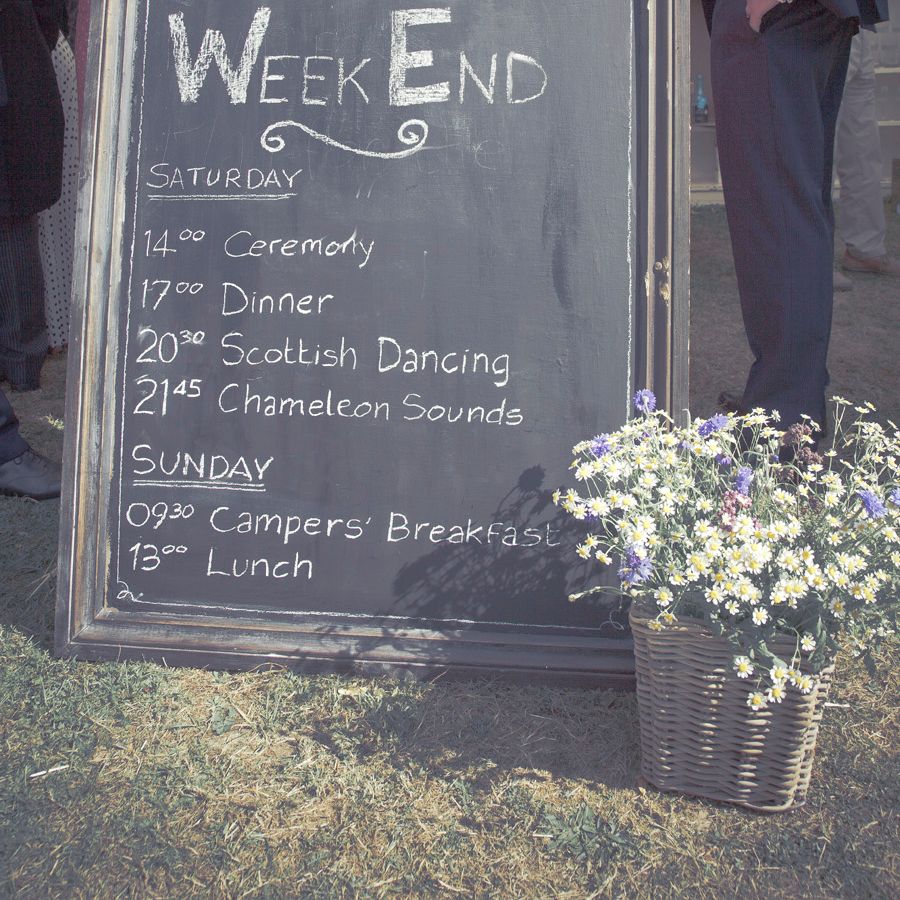 WEEK END
SATURDAY
14⁰⁰ Ceremony
17⁰⁰ Dinner
20³⁰ Scottish Dancing
21⁴⁵ Chameleon Sounds
SUNDAY
09³⁰ Campers' Breakfast
13⁰⁰ Lunch